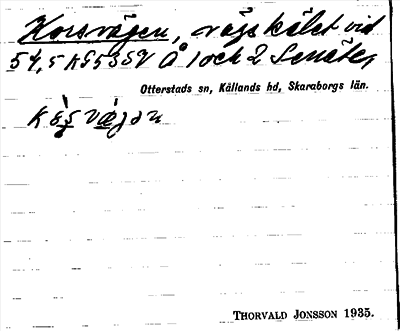 Korsvägen, vägskälet vid
54,5 KG535V Å 1 och 2 Senäte,
Otterstads sn, Kållands hd, Skaraborgs län.
THORVALD JONSSON 1935.